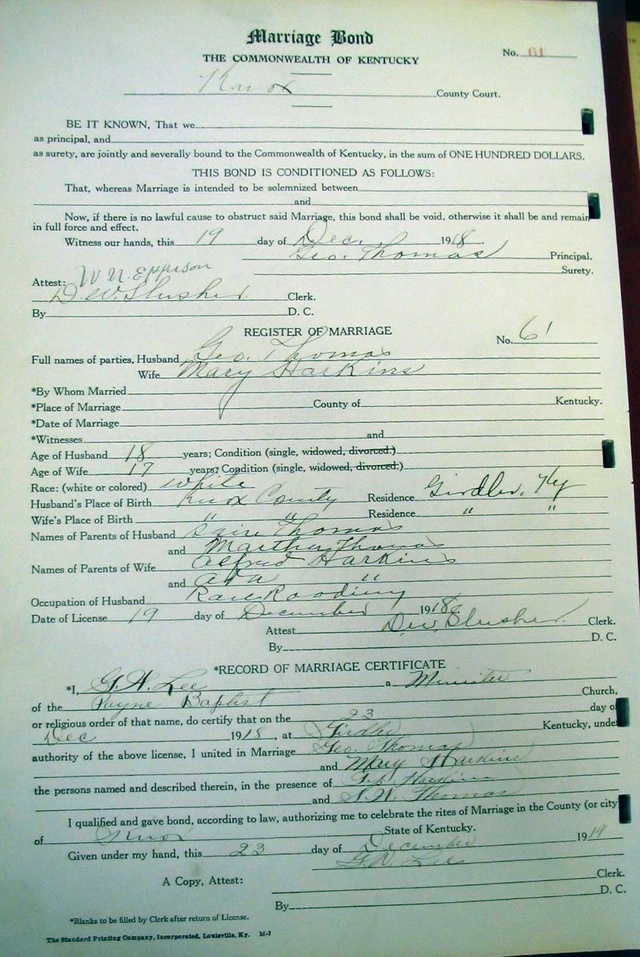 Marriage Bond
No. 61
THE COMMONWEALTH OF KENTUCKY
Knox County Court.
BE IT KNOWN, That we
as principal, and
as surety, are jointly and severally bound to the Commonwealth of Kentucky, in the sum of ONE HUNDRED DOLLARS.
THIS BOND IS CONDITIONED AS FOLLOWS:
That, whereas Marriage is intended to be solemnized between
and
Now, if there is no lawful cause to obstruct said Marriage, this bond shall be void, otherwise it shall and remain
in full force and effect.
Witness our hands, this 19 day of Dec. 1918
Geo. Thomas Principal.
Surety.
Attest: W. N.
D. W. Slusher Clerk.
By D. C.
REGISTER OF MARRIAGE
No. 61
Full names of parties, Husband Geo. Thomas
Wife Mary Harkins
*By Whom Married
*Place of Marriage County of Kentucky.
*Date of Marriage
*Witnesses and
Age of Husband 18 years; Condition (single, widowed, divorced.)
Age of Wife 17 years; Condition (single, widowed, divorced.)
Race: (white or colored) white
Husband's Place of Birth Knox County Residence Girdler, Ky
Wife's Place of Birth " " Residence " "
Names of Parents of Husband Thomas
and Martha Thomas
Names of Parents of Wife Alfred Harkins
and "
Occupation of Husband Rail Roading
Date of License 19 day of December 1918
Attest D. W. Slusher Clerk.
By D. C.
*RECORD OF MARRIAGE CERTIFICATE
*I, G. W. Lee a Minister
of the Payne Baptist Church,
or religious order of that name, do certify that on the 23 day of
Dec 1918, at Girdler Kentucky, under
authority of the above license, I united in Marriage Geo. Thomas
and Mary Harkins
the persons named and described therein, in the presence of Harkins
and Thomas
I qualified and gave bond, according to law, authorizing me to celebrate the rites of Marriage in the County (or city
of Knox State of Kentucky.
Given under my hand, this 23 day of December 191
G. W. Lee
A Copy, Attest: Clerk.
By D. C.
*Blanks to be filled by Clerk after return of License.
The Standard Printing Company, Incorporated, Louisville, Ky. M-7